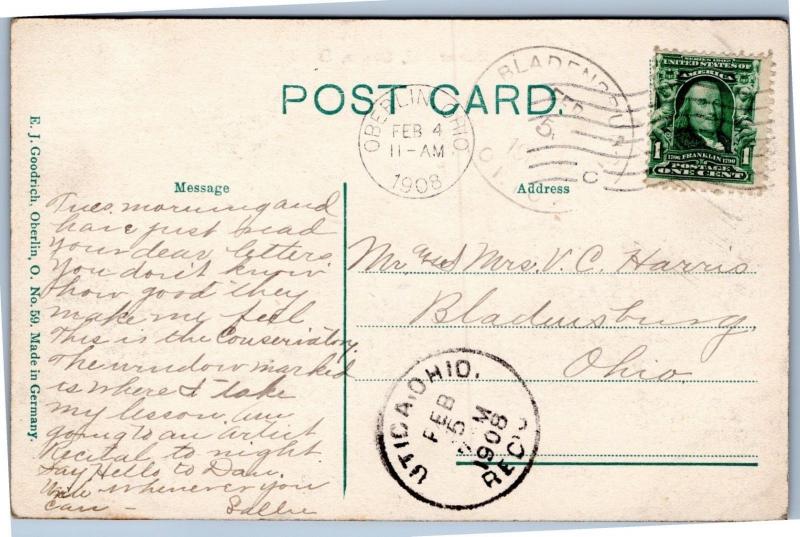 POST CARD.
OBERLIN, OHIO
FEB 4
11-AM
1908
BLADENSBURG
FEB
5
O.
SERIES 1902
UNITED STATES OF
AMERICA
1706 FRANKLIN 1790
1 POSTAGE 1
ONE CENT
Message
Address
Tues. morning and
have just read
your dear letters.
You don't know
how good they
make me feel
This is the Conservatory.
The window marked
is where I take
my lesson. am
going to an artist
Recital to night.
Say Hello to Dan.
Write whenever you
can - Sallie
Mr and Mrs. V. C. Harris
Bladensburg
Ohio.
UTICA, OHIO.
FEB
5
M
1908
REC'D
E. J. Goodrich, Oberlin, O. No. 59. Made in Germany.